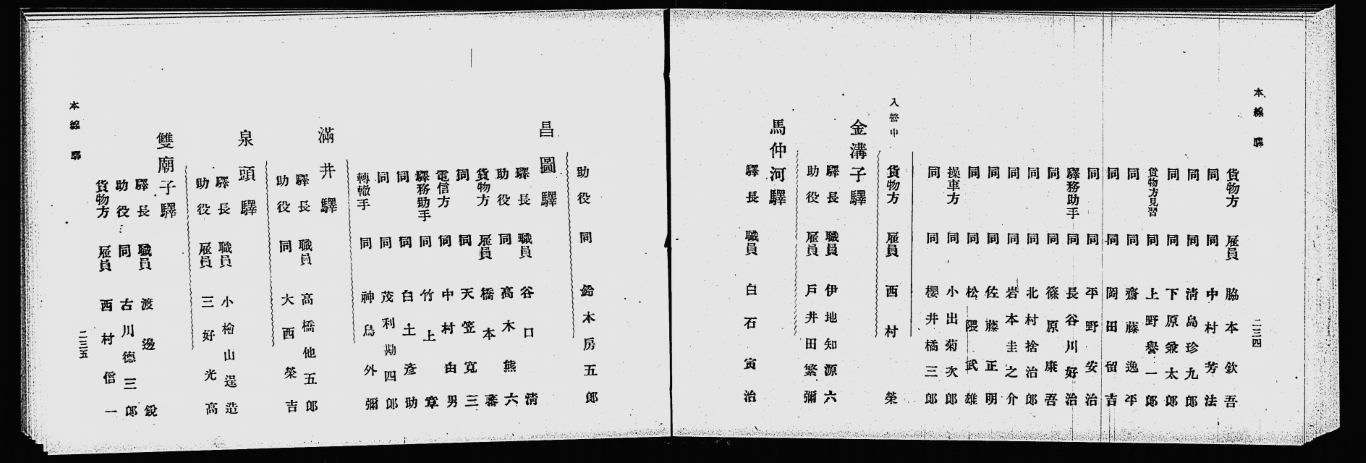 本線驛
二三四
貨物方 雇員 脇本欽吾
同 同 中村芳法
同 同 清島珍九郎
同 同 下原兼太郎
貨物方見習 同 上野譽一郎
同 同 齋藤逸平
同 同 岡田留吉
同 同 平野安治
驛務助手 同 長谷川好治
同 同 篠原康吾
同 同 北村捨治郎
同 同 岩本圭之介
同 同 佐藤正明
同 同 松隈武雄
操車方 同 小出菊次郎
同 同 櫻井橘三郎
入營中 貨物方 雇員 西村榮
金溝子驛
驛長 職員 伊地知源六
助役 雇員 戸井田繁彌
馬仲河驛
驛長 職員 白石寅治
助役 同 鈴木房五郎
昌圖驛
驛長 職員 谷口清
助役 同 高木熊六
貨物方 雇員 橋本蕃
同 同 天笠寛三
電信方 同 中村由男
驛務助手 同 竹上章
同 同 白土彦助
同 同 茂利勘四郎
轉轍手 同 神鳥外彌
滿井驛
驛長 職員 高橋他五郎
助役 同 大西榮吉
泉頭驛
驛長 職員 小檜山逞造
助役 雇員 三好光高
雙廟子驛
驛長 職員 渡邊鋭
助役 同 古川德三郎
貨物方 雇員 西村信一
本線驛
二三五